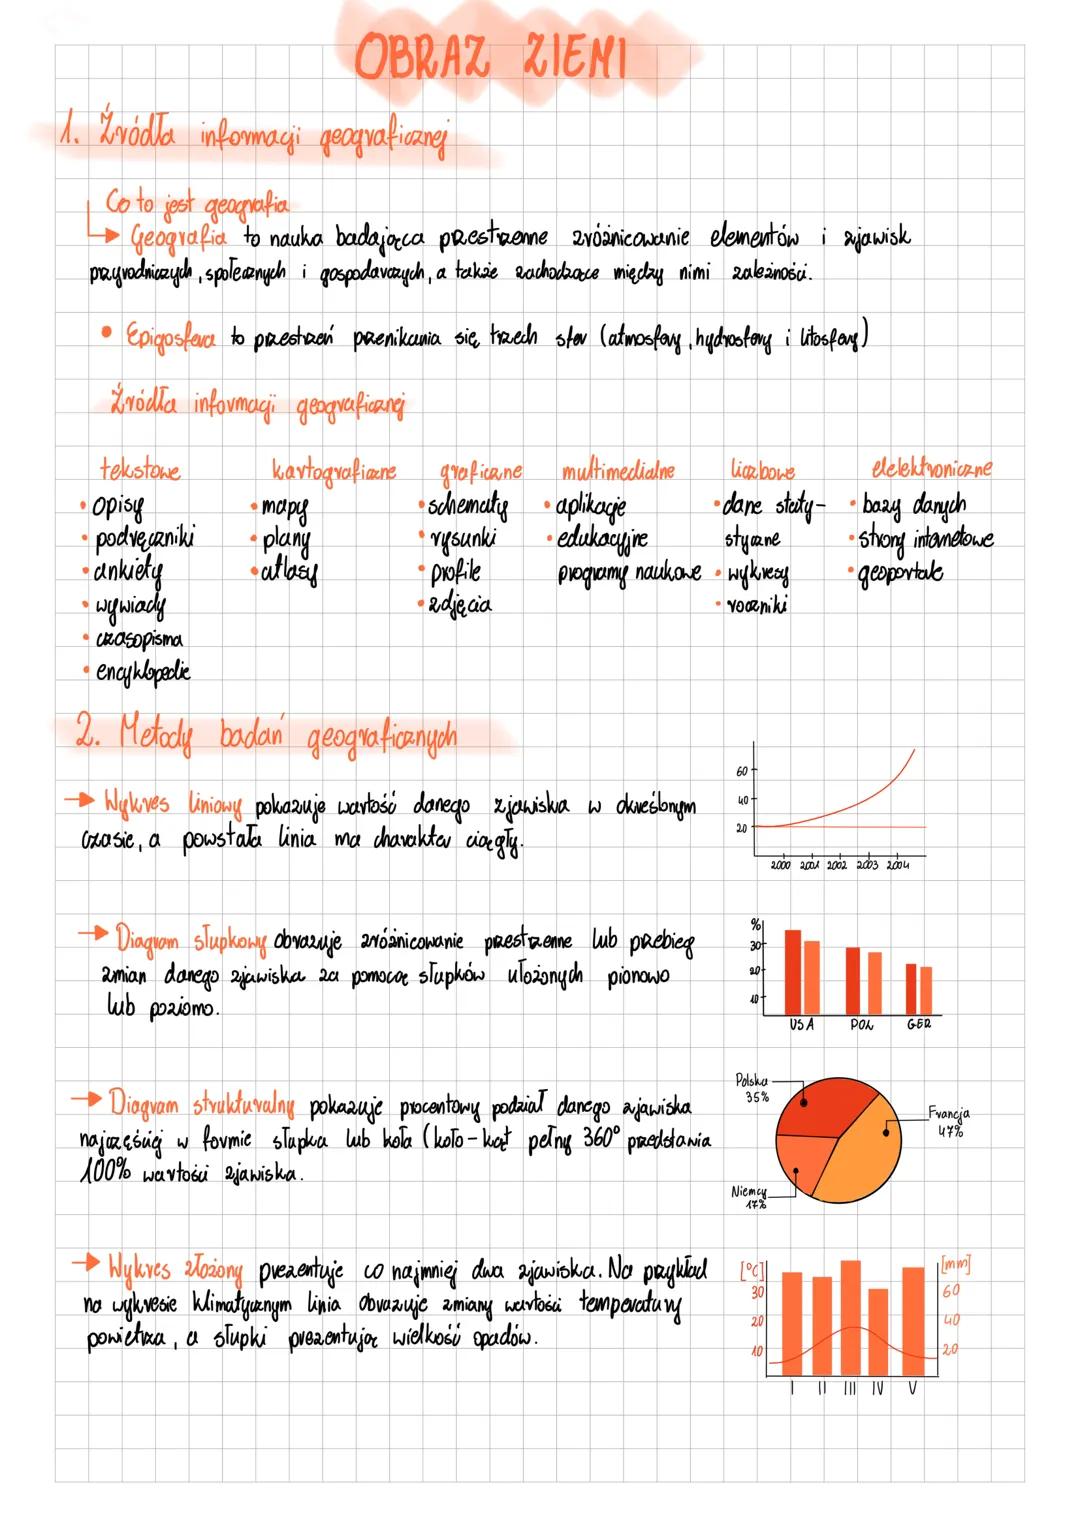 OBRAZ ZIEMI
1. Źródła informacji geograficznej
Co to jest geografia
Geografia to nauka badająca przestrzenne zróżnicowanie elementów i zjawisk
przyrodniczych, społecznych i gospodarczych, a także zachodzące między nimi zależności.
• Epigosfera to przestrzeń przenikania się trzech sfer (atmosfery, hydrosfery i litosfery)
Źródła informacji geograficznej
tekstowe kartograficzne graficzne multimedialne liczbowe elelektroniczne
• opisy • mapy • schematy • aplikacje • dane staty- • bazy danych
• podręczniki • plany • rysunki • edukacyjne styczne • strony internetowe
• ankiety • atlasy • profile programy naukowe • wykresy • geoportale
• wywiady • zdjęcia • roczniki
• czasopisma
• encyklopedie
2. Metody badań geograficznych
→ Wykres liniowy pokazuje wartość danego zjawiska w określonym
czasie, a powstała linia ma charakter ciągły.
60
40
20
2000 2001 2002 2003 2004
→ Diagram słupkowy obrazuje zróżnicowanie przestrzenne lub przebieg
zmian danego zjawiska za pomocą słupków ułożonych pionowo
lub poziomo.
%
30
20
10
USA POL GER
→ Diagram strukturalny pokazuje procentowy podział danego zjawiska
najczęściej w formie słupka lub koła (koło-kąt pełny 360° przedstawia
100% wartości zjawiska.
Polska
35%
Francja
47%
Niemcy
17%
→ Wykres złożony prezentuje co najmniej dwa zjawiska. Na przykład
na wykresie klimatycznym linia obrazuje zmiany wartości temperatury
powietrza, a słupki prezentują wielkość opadów.
[°C] [mm]
30 60
20 40
10 20
I II III IV V